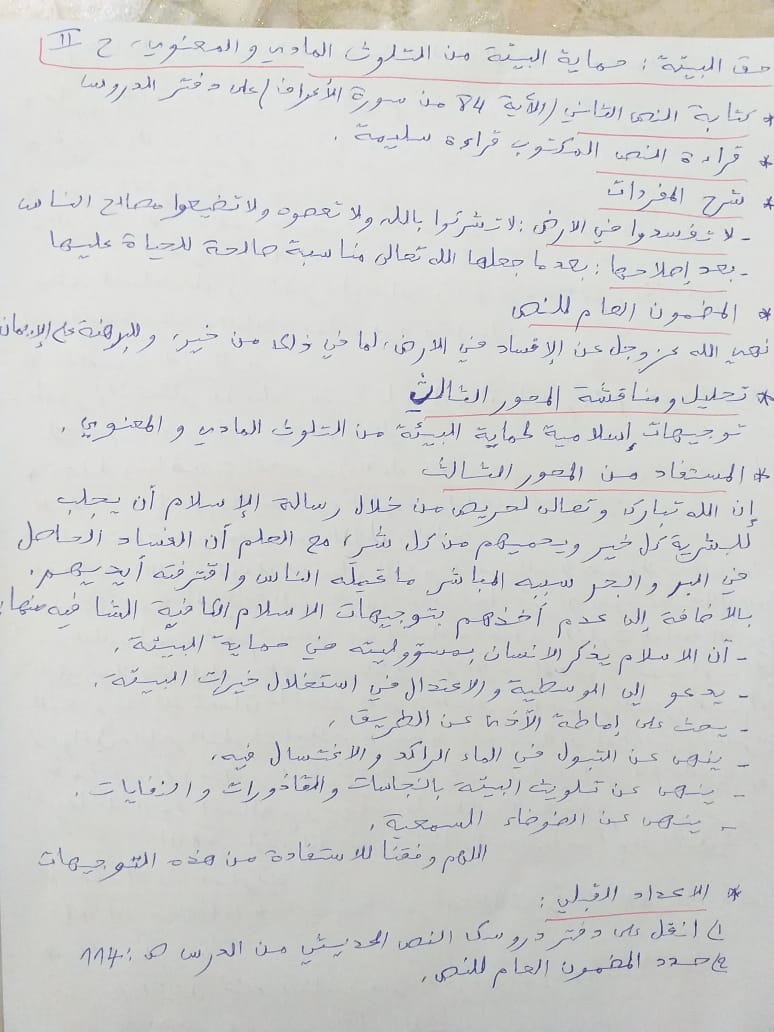 حق البيئة : حماية البيئة من التلوث المادي والمعنوي، ح II
* كتابة النص الثاني (الآية 84 من سورة الأعراف) على دفتر الدروس
* قراءة النص المكتوب قراءة سليمة .
* شرح المفردات
- لا تفسدوا في الارض : لا تشركوا بالله ولا تعصوه ولا تضيعوا مصالح الناس
- بعد إصلاحها : بعدما جعلها الله تعالى مناسبة صالحة للحياة عليها
* المضمون العام للنص
نهي الله عز وجل عن الإفساد في الارض، لما في ذلك من خير، وللبرهنة على الإيمان
* تحليل ومناقشة المحور الثالث
توجيهات إسلامية لحماية البيئة من التلوث المادي و المعنوي .
* المستفاد من المحور الثالث
إن الله تبارك وتعالى لحريص من خلال رسالة الإسلام أن يجلب
للبشرية كل خير ويحميهم من كل شر، مع العلم أن الفساد الحاصل
في البر والبحر سببه المباشر ما عمله الناس واقترفته أيديهم .
بالاضافة إلى عدم أخذهم بتوجيهات الاسلام الكافية الشافية منها:
- أن الاسلام يذكر الانسان بمسؤوليته في حماية البيئة .
- يدعو إلى الوسطية والاعتدال في استغلال خيرات البيئة .
- يحث على إماطة الأذى عن الطريق .
- ينهى عن التبول في الماء الراكد والاغتسال فيه .
- ينهى عن تلويث البيئة بالنجاسات والقاذورات والنفايات .
- ينهى عن الضوضاء السمعية .
اللهم وفقنا للاستفادة من هذه التوجيهات
* الاعداد القبلي :
1) انقل على دفتر دروسك النص الحديثي من الدرس ص : 114
2) حدد المضمون العام للنص .